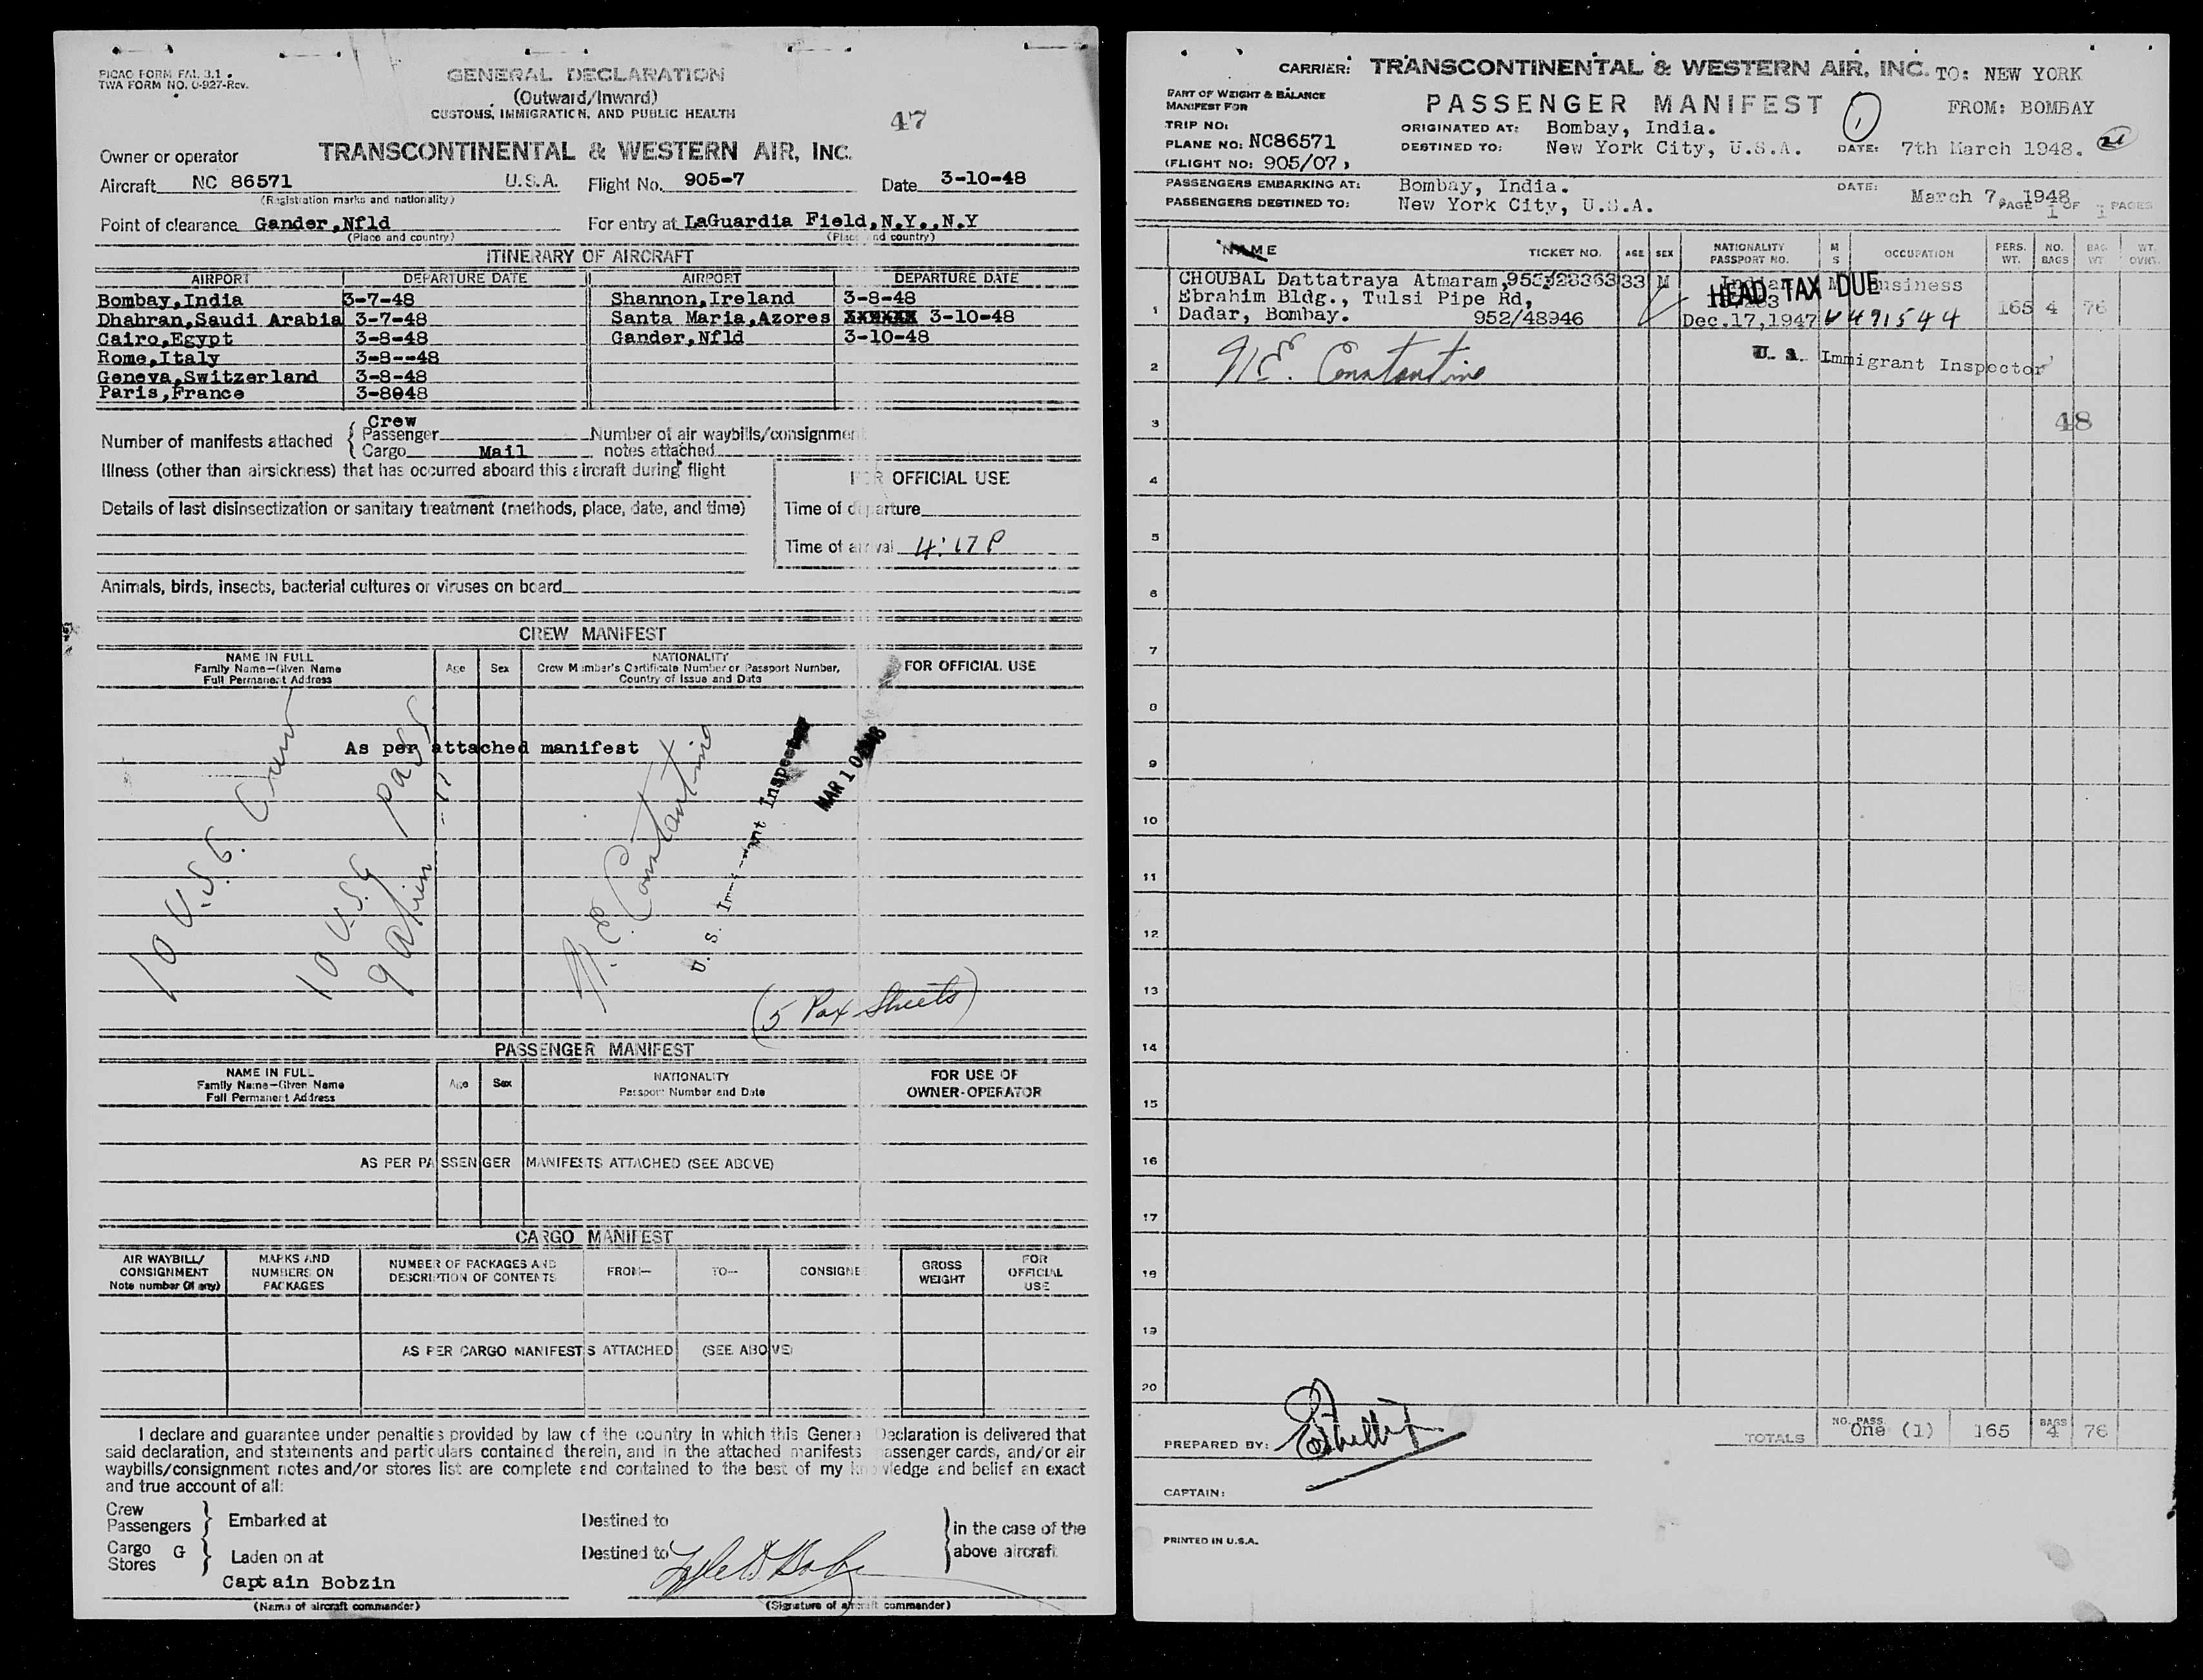 PICAO FORM FAL 3.1
TWA FORM NO. 0-927-Rev.
GENERAL DECLARATION
(Outward/Inward)
CUSTOMS, IMMIGRATION, AND PUBLIC HEALTH
47
Owner or operator TRANSCONTINENTAL & WESTERN AIR, INC.
Aircraft NC 86571 U.S.A. Flight No. 905-7 Date 3-10-48
(Registration marks and nationality)
Point of clearance Gander,Nfld For entry at LaGuardia Field,N.Y.,N.Y
(Place and country) (Place and country)
ITINERARY OF AIRCRAFT
AIRPORT DEPARTURE DATE AIRPORT DEPARTURE DATE
Bombay,India 3-7-48 Shannon,Ireland 3-8-48
Dhahran,Saudi Arabia 3-7-48 Santa Maria,Azores 3-10-48
Cairo,Egypt 3-8-48 Gander,Nfld 3-10-48
Rome,Italy 3-8--48
Geneva,Switzerland 3-8-48
Paris,France 3-8048
Crew
Number of manifests attached { Passenger Number of air waybills/consignment
Cargo Mail notes attached
Illness (other than airsickness) that has occurred aboard this aircraft during flight
FOR OFFICIAL USE
Details of last disinsectization or sanitary treatment (methods, place, date, and time)
Time of departure
Time of arrival 4:17 P
Animals, birds, insects, bacterial cultures or viruses on board
CREW MANIFEST
NAME IN FULL
Family Name—Given Name
Full Permanent Address
Age Sex
NATIONALITY
Crew Member's Certificate Number or Passport Number,
Country of Issue and Date
FOR OFFICIAL USE
As per attached manifest
10 U.S.C. Crew
10 U.S.C pass
9 alien "
N. E. Constantine
U. S. Immigrant Inspector
MAR 10 1948
(5 Pax Sheets)
PASSENGER MANIFEST
NAME IN FULL
Family Name—Given Name
Full Permanent Address
Age Sex
NATIONALITY
Passport Number and Date
FOR USE OF
OWNER-OPERATOR
AS PER PASSENGER MANIFESTS ATTACHED (SEE ABOVE)
CARGO MANIFEST
AIR WAYBILL/
CONSIGNMENT
Note number (if any)
MARKS AND
NUMBERS ON
PACKAGES
NUMBER OF PACKAGES AND
DESCRIPTION OF CONTENTS
FROM— TO— CONSIGNEE
GROSS
WEIGHT
FOR
OFFICIAL
USE
AS PER CARGO MANIFESTS ATTACHED (SEE ABOVE)
I declare and guarantee under penalties provided by law of the country in which this General Declaration is delivered that
said declaration, and statements and particulars contained therein, and in the attached manifests passenger cards, and/or air
waybills/consignment notes and/or stores list are complete and contained to the best of my knowledge and belief an exact
and true account of all:
Crew
Passengers } Embarked at Destined to } in the case of the
Cargo G
Stores } Laden on at Destined to above aircraft
Captain Bobzin
(Name of aircraft commander) (Signature of aircraft commander)
CARRIER: TRANSCONTINENTAL & WESTERN AIR, INC. TO: NEW YORK
PART OF WEIGHT & BALANCE
MANIFEST FOR
PASSENGER MANIFEST 1 FROM: BOMBAY
TRIP NO: ORIGINATED AT: Bombay, India.
PLANE NO: NC86571 DESTINED TO: New York City, U.S.A. DATE: 7th March 1948.
(FLIGHT NO: 905/07)
PASSENGERS EMBARKING AT: Bombay, India. DATE: March 7, 1948
PASSENGERS DESTINED TO: New York City, U.S.A. PAGE 1 OF 1 PAGES
NAME TICKET NO. AGE SEX NATIONALITY PASSPORT NO. M S OCCUPATION PERS. WT. NO. BAGS BAG. WT. WT. OVHT.
1 CHOUBAL Dattatraya Atmaram, 953/28363 33 M Indian M Business
Ebrahim Bldg., Tulsi Pipe Rd, HEAD TAX DUE
Dadar, Bombay. 952/48946 Dec.17,1947 V491544 165 4 76
2 N.E. Constantine U. S. Immigrant Inspector
3 48
4
5
6
7
8
9
10
11
12
13
14
15
16
17
18
19
20
PREPARED BY: TOTALS NO. PASS. One (1) 165 BAGS 4 76
CAPTAIN:
PRINTED IN U.S.A.